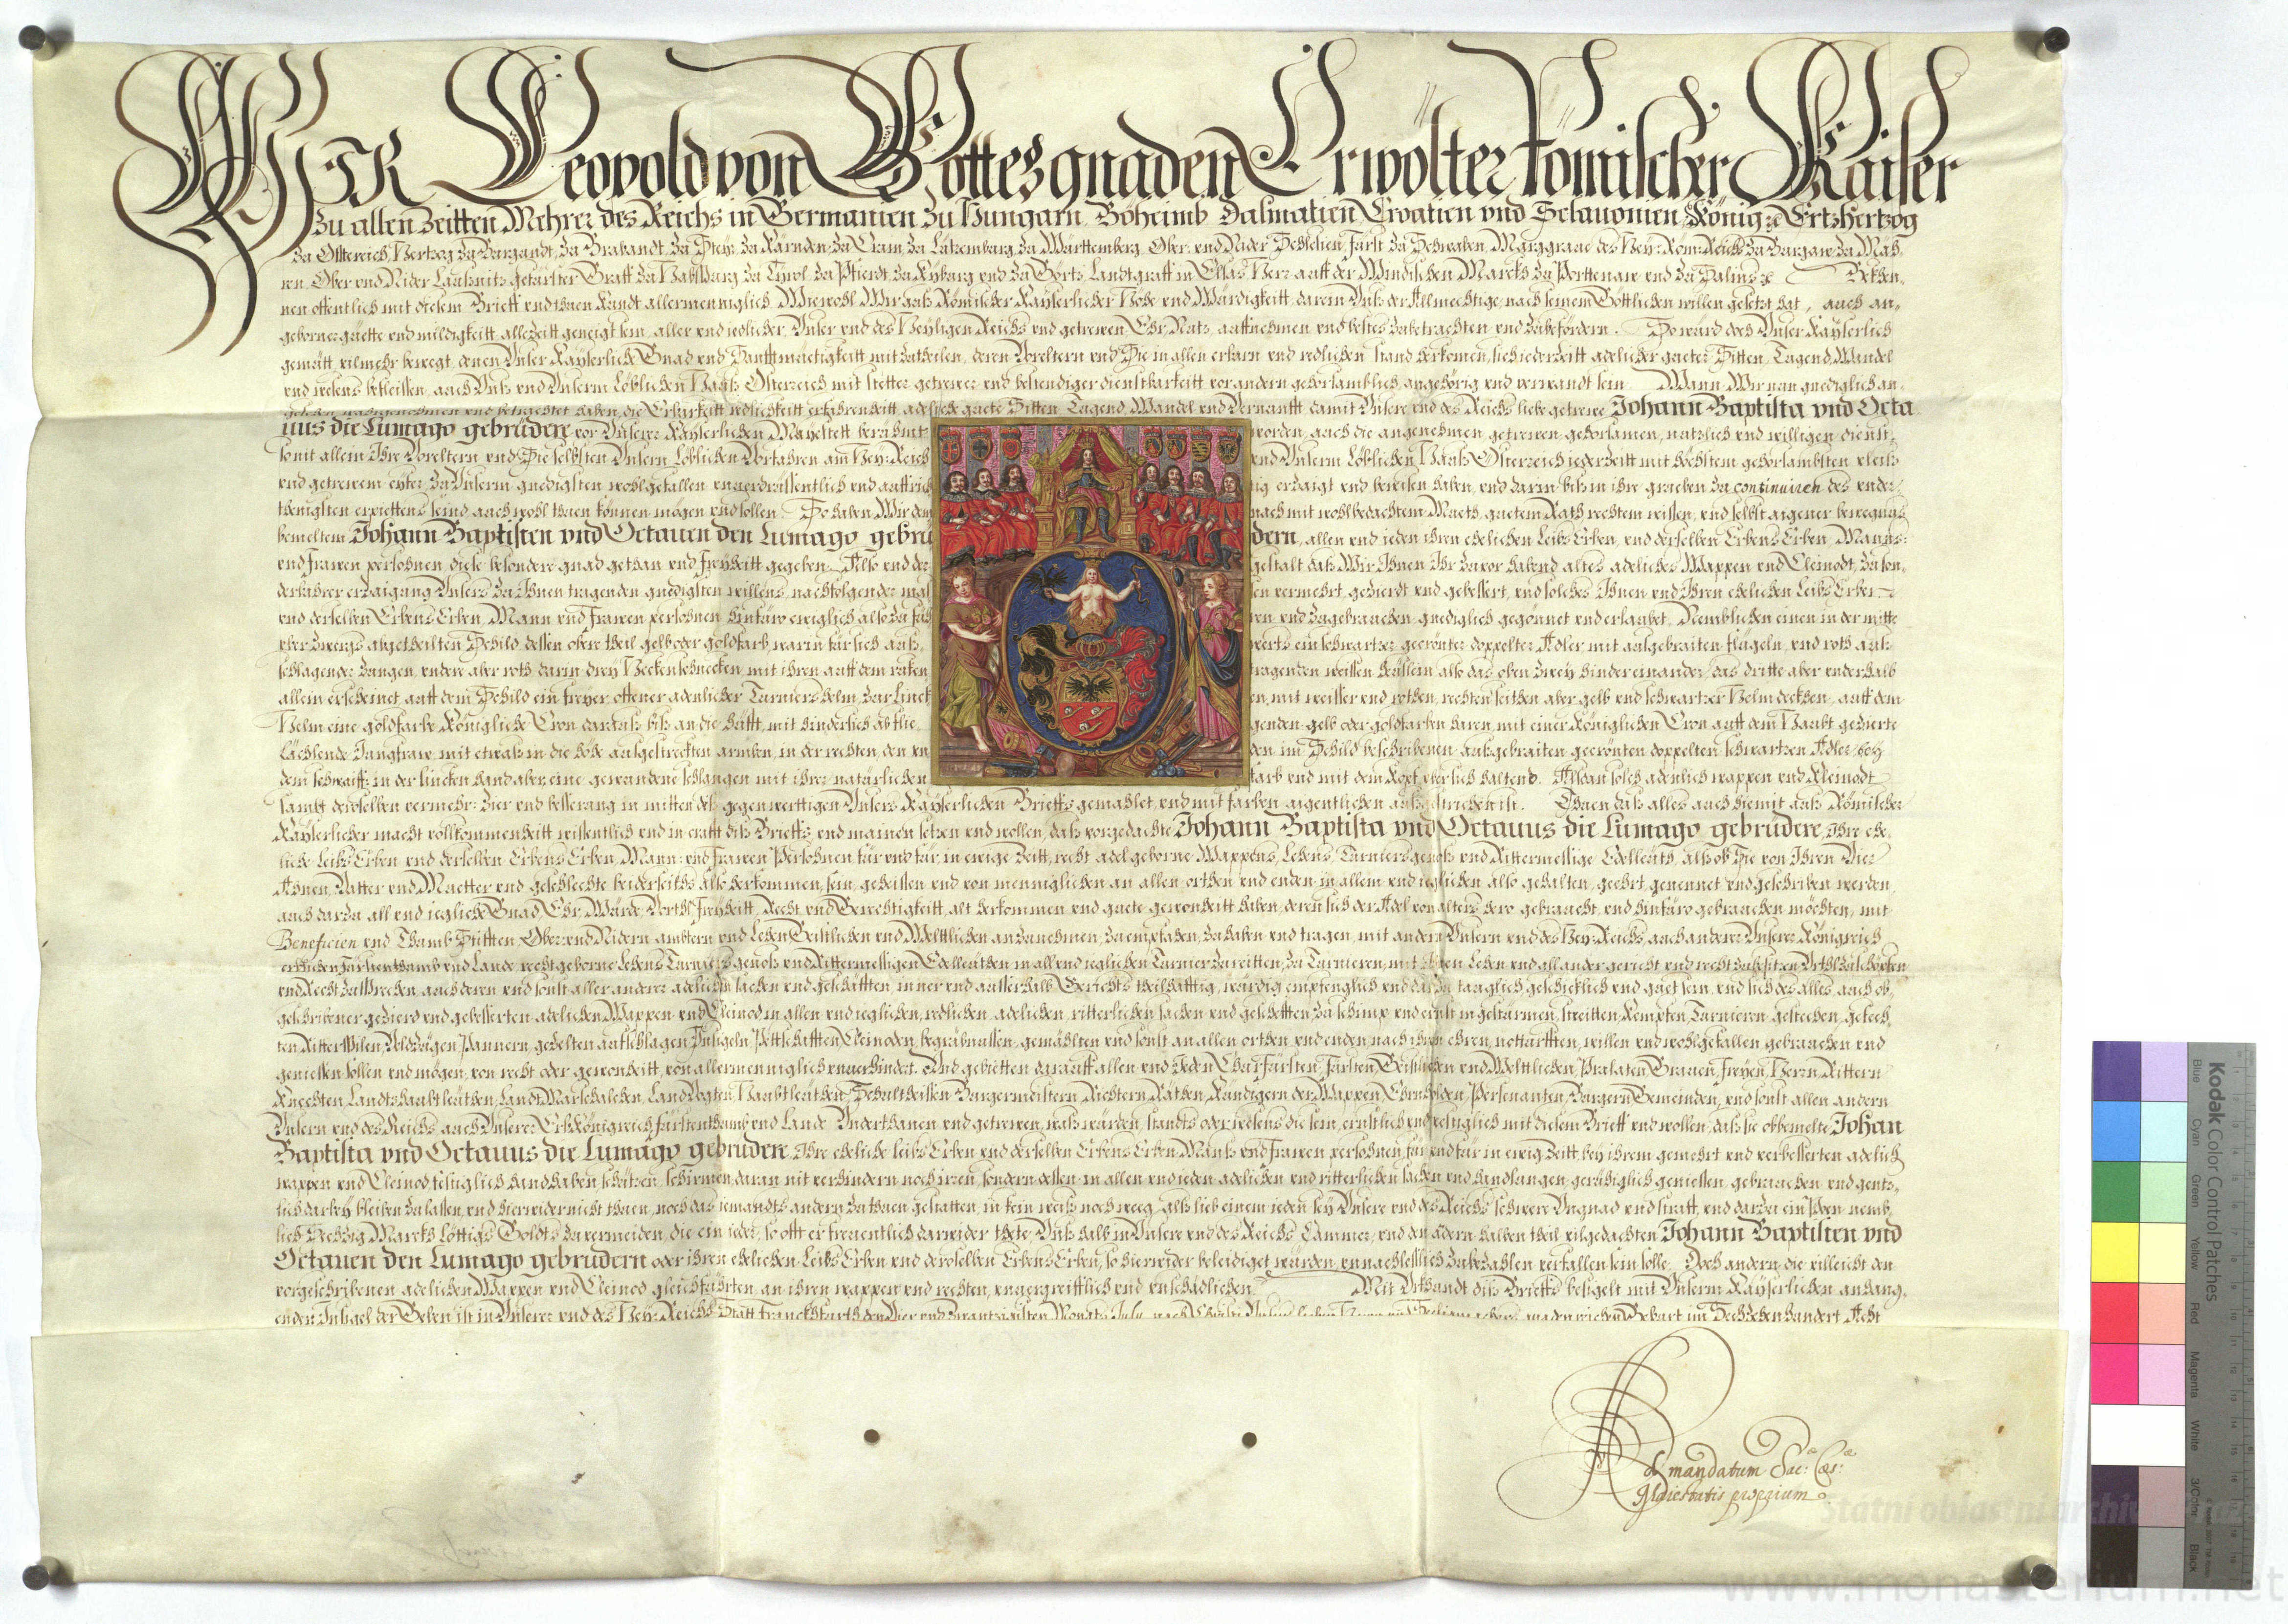 WIR Leopold von Gottes gnaden Erwölter Römischer Kaiser
zu allen Zeitten Mehrer des Reichs in Germanien zu Hungarn Böheimb Dalmatien Croatien vnd Sclauonien König Ertzhertzog
zu Österreich Hertzog zu Burgundt, zu Brabandt, zu Steir, zu Kärnden, zu Crain, zu Lützemburg, zu Württemberg, Ober vnd Nider Schlesien, Fürst zu Schwaben, Marggraue des Hey: Röm: Reichs zu Burgaw, zu Mäh
ren, Ober vnd Nider Laußnitz, gefürster Graff zu Habspurg, zu Tyrol, zu Pfierdt, zu Kyburg vnd zu Görtz, Landtgraff in Elsas, Herr auff der Windischen Marckh, zu Porttenaw vnd zu Salins Bekhen
nen offentlich mit disem Brieff vnd thuen kundt allermenniglich, Wiewohl Wir auß Römischer Kayserlicher Höhe vnd Würdigkeitt, darein Unß der Allmechtige nach seinem Göttlichen willen gesetzt hat, auch an
geborner güette vnd mildigkeitt allezeitt geneigt sein, aller vnd iedlicher Unser vnd des Heyligen Reichs vnd getrewen Ehr, Nutz, auffnehmen vnd bestes zubetrachten vnd zubefördern. So würd doch Unser Kayserlich
gemütt vilmehr bewegt, denen Unser Kayserliche Gnad vnd Sanfftmüetigkeitt mitzutheilen, deren Voreltern vnd Sie in allen erbarn vnd redlichen stand herkomen, sich iederzeitt adelicher gueter Sitten, Tugend, Wandel
vnd wesens beflissen, auch Unß vnd Unserm Löblichen Hauß Österreich mit stetter getrewer vnd bestendiger dienstbarkeitt vor andern gehorsamblich angehörig vnd verwandt sein Wann Wir nun gnediglich an
die Erbarkeitt redlichkeitt erfahrenheitt, adeliche guete Sitten, Tugend, Wandel vnd Vernunfft damit Unsere vnd des Reichs liebe getrewe Johann Baptista vnd Octa
uus die Lumago gebrüdere vor Unserer Kayserlichen Mayestett berühmt worden, auch die angenehmen, getrewen, gehorsamen, nutzlich vnd willigen dienst,
so mit allein Ihre Voreltern vnd Sie selbsten Unsern Löblichen Vorfahren am Hey: Reich vnd Unserm Löblichen Hauß Österreich iederzeitt mit höchstem gehorsambsten vleiß
vnd getrewem eyfer, zu Unserm gnedigsten wohlgefallen vnuerdrossentlich vnd auffrich ig erzaigt vnd bewisen haben, vnd darin biß in ihre grueben zu continuiren des vnder
thenigsten erpiettens seind, auch wohl thuen können mögen vnd sollen So haben Wir dem nach mit wohlbedachtem Mueth, guetem Rath, rechtem wissen, vnd selbst aigener bewegnus
bemeltem Johann Baptisten vnd Octauen den Lumago gebrü dern, allen vnd ieden ihren ehelichen Leibs Erben, vnd derselben Erbens Erben, Manns:
vnd Frawen persohnen, diese besondere gnad gethan vnd Freyheitt gegeben Also vnd der gestalt daß Wir Ihnen Ihr zuvor habend altes adeliches Wappen vnd Cleinodt, zu son
derbahrer erzaigung Unsers zu Ihnen tragenden gnedigsten willens, nachfolgender mas en vermehrt, gezierdt vnd gebessert, vnd solches Ihnen vnd Ihren ehelichen Leibs Erben
vnd derselben Erbens Erben, Mann vnd Frawen persohnen hinfüro ewiglich also zu füh ren vnd zugebrauchen gnediglich gegönnet vnd erlaubet. Nemblichen einen in der mitte
vber zwergs abgetheilten Schild dessen ober theil gelb oder goldfarb warin für sich auff werts ein schwartzer gecrönter doppelter Adler mit ausgebraiten flügeln, vnd roth auß
schlagender zungen, vndere aber roth darin drey Heckenschnecken, mit ihren auß dem rucken ragenden weissen heüslein also das oben zwey hindereinander, das dritte aber vnderhalb
allein erscheinet, auff dem Schild ein freyer offener adenlicher Turniers helm, zur linck en, mit weisser vnd rothen, rechten seithen aber gelb vnd schwartzer Helm deckhen, auff dem
Helm eine goldfarbe Königliche Cron daruß biß an die hüfft, mit hindersich abflie genden gelb oder goldfarben haren, mit einer Königlichen Cron auff dem Haubt gezierte
Lächlende Jungfraw, mit etwaß in die höhe außgestreckten armben, in der rechten, den im Schild beschribenen außgebraiten gecrönten doppelten schwartzen Adler bey
dem schwaiff, in der lincken hand aber, eine gewundene schlangen mit ihrer natürlichen farb vnd mit dem Kopf vber sich haltend. Alßdan solch adenlich wappen vnd Kleinodt
sambt derselben vermehr: Zier vnd besserung in mitten deß gegenwerttigen Unsers Kayserlichen Brieffs gemahlet, vnd mit farben aigentlichen außgestrichen ist. Thuen daß alles auch hiemit auß Römischer
Kayserlicher macht vollkommenheitt wissentlich vnd in crafft diß Brieffs, vnd mainen setzen vnd wollen, daß vorgedachte Johann Baptista vnd Octauus die Lumago gebrüdere, Ihre ehe
liche Leibs Erben vnd derselben Erbens Erben, Mann: vnd Frawen Persohnen für vnd für, in ewige Zeitt, recht adel geborne Wappens, Lehens, Turniersgenoß vnd Rittermessige Edelleüth, alß ob Sie von Ihren Vier
Ahnen, Vatter vnd Muetter vnd geschlechte beiderseiths also herkommen, sein, geheissen vnd von menniglichen an allen orthen vnd enden in allem vnd ieglichen also gehalten, geehrt, genennet vnd geschriben werden,
auch darzu all vnd iegliche Gnad, Ehr, Würde, Vorthl, Freyheitt, Recht, vnd Gerechtigkeitt, alt herkommen vnd guete gewonheitt haben, deren sich der Adel von alters hero gebraucht, vnd hinfüro gebrauchen möchten, mit
Beneficien vnd Thumb Stifften, Ober: vnd Nidern ambtern vnd Lehen Geistlichen vnd Weltlichen anzunehmen, zu empfahen, zu haben vnd tragen, mit andern Unsern vnd des Hey: Reichs, auch anderer Unserer Königreich
erblichen Fürstenthumb vnd Lande, recht geborne Lehens Turniersgenoß vnd Rittermessigen Edelleüthen in all vnd ieglichen Turnier zureitten, zu Turnieren, mit ihnen Lehen vnd all ander gericht vnd recht zubesitzen Urthl zuschöpfen
vnd Recht zusprechen, auch deren vnd sonst aller anderer adelichen sachen vnd geschäfften, inner vnd ausserhalb Gerichts theilhafftig, würdig, empfenglich vnd darzu tauglich, geschicklich vnd guet sein vnd sich des alles, auch ob
geschribener gezierd vnd gebesserten adelichen Wappen vnd Cleinod in allen vnd ieglichen, redlichen, adelichen, ritterlichen sachen vnd geschefften, zu schimpf vnd ernst in gestürmen, streitten, Kempfen, Turnieren, gestechen, gefech
ten, Ritterspilen, Veldzügen, Pannern, gezelten auffschlagen, Insigeln, Pettschafften, Cleinoden, begräbnussen, gemählten vnd sonst an allen orthen vnd enden, nach ihren ehren, notturfften, willen vnd wohlgefallen gebrauchen vnd
geniessen sollen vnd mögen, von recht oder gewonheitt, von allermenniglich vnuerhindert. Und gebietten darauff allen vnd ieden Churfürsten, Fürsten Geistlichen vnd Weltlichen, Prælaten Grauen, Freyen, Herrn Rittern
Knechten, Landtshaubtleüthen, Landt Marschalchen, Landt Vögten, Haubtleüthen, Schultheissen Burgermeistern Richtern Räthen, Kündigern der Wappen, Ehrnholden, Persenanten, Burgern Gemeinden, vnd sonst allen andern
Unsern vnd des Reichs, auch Unserer Erb Königreich Fürstenthumb vnd Lande Underthanen vnd getrewen, waß würden, stands oder wesens die sein, ernstlich vnd vestiglich mit diesem Brieff, vnd wollen, daß sie obbemelte Johan
Baptista vnd Octauus die Lumago gebrüdere, Ihre eheliche Leibs Erben vnd derselben Erbens Erben, Manß vnd Frawen persohnen, für vnd für in ewig Zeitt, bey ihrem gemehrt vnd verbesserten adelich
wappen vnd Cleinod festiglich handhaben, schützen, schirmen, daran nit verhindern noch irren, sondern dessen in allen vnd ieden adelichen vnd ritterlichen sachen vnd handlungen, gerühiglich geniessen, gebrauchen vnd gentz
lich darbey bleiben zulassen, vnd hierwider nicht thuen, noch das iemandts andern zuthuen gestatten, in kein weiß noch weeg, alß lieb einem ieden sey Unsere vnd des Reichs schwere Ungnad vnd straff, vnd darzu ein Poen nemb
lich Sechzig Marckh löttigs Goldts zuuermeiden, die ein ieder, so offt er freuentlich darwider thete, Unß halb in Unsere vnd des Reichs Cammer, vnd den andern halben theil vilgedachten Johann Baptisten vnd
Octauen den Lumago gebrüdern oder ihren ehelichen Leibs Erben vnd derselben Erbens Erben, so hierwider beleidiget würden, vnnachleßlich zubezahlen verfallen sein solle. Doch andern die villeicht den
vorgeschribenen adelichen Wappen vnd Cleinod gleichführten, an ihren wappen vnd rechten, vnuergreifflich vnd vnschädlichen. Mit Urkundt diß Brieffs besigelt mit Unserm Kayserlichen anhang
enden Insigel der Geben ist in Unserer vnd des Hey: Reichs Statt Franckhfurth den Vier vnd zwantzigisten Monats July, nach Christi Geburt im Sechzehen hundert Acht
Ad mandatum Sac: Cæs:
Maiestatis proprium
Kodak Color Control Patches
Blue Cyan Green Yellow Red Magenta White 3/Color Black
Státní oblastní archiv
www.monasterium.net